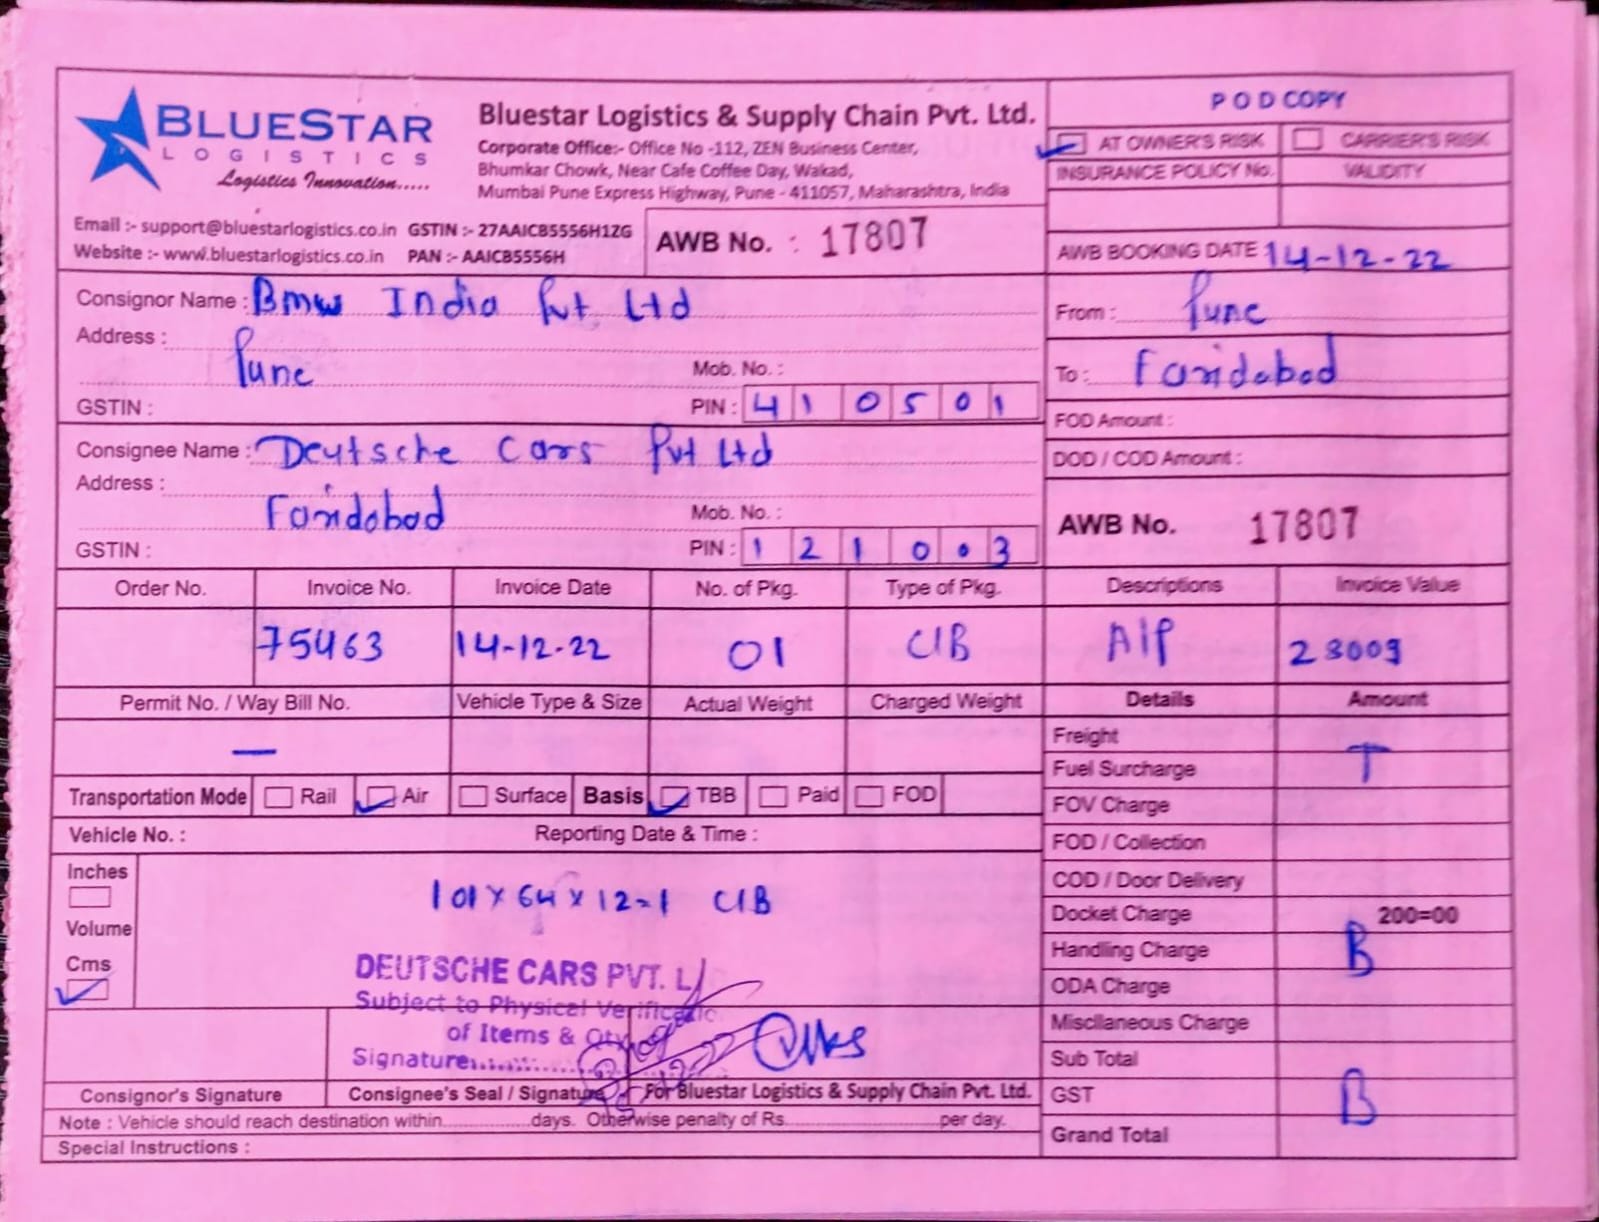 BLUESTAR
LOGISTICS
Logistics Innovation.....
Bluestar Logistics & Supply Chain Pvt. Ltd.
Corporate Office:- Office No -112, ZEN Business Center,
Bhumkar Chowk, Near Cafe Coffee Day, Wakad,
Mumbai Pune Express Highway, Pune - 411057, Maharashtra, India
Email :- support@bluestarlogistics.co.in GSTIN :- 27AAICB5556H1ZG
Website :- www.bluestarlogistics.co.in PAN :- AAICB5556H
AWB No. : 17807
POD COPY
AT OWNER'S RISK CARRIER'S RISK
INSURANCE POLICY No. VALIDITY
AWB BOOKING DATE : 14-12-22
Consignor Name : Bmw India Pvt Ltd
Address :
Pune
Mob. No. :
GSTIN : PIN : 410501
From : Pune
To : Faridabad
FOD Amount :
DOD / COD Amount :
Consignee Name : Deutsche Cars Pvt Ltd
Address :
Faridabad
Mob. No. :
GSTIN : PIN : 121003
AWB No. 17807
Order No. Invoice No. Invoice Date No. of Pkg. Type of Pkg. Descriptions Invoice Value
75463 14-12-22 01 C/B A/P 23009
Permit No. / Way Bill No. Vehicle Type & Size Actual Weight Charged Weight Details Amount
—
Transportation Mode Rail Air Surface Basis TBB Paid FOD
Vehicle No. : Reporting Date & Time :
Inches
Volume
Cms
101 x 64 x 12 = 1 C/B
DEUTSCHE CARS PVT. L
Subject to Physical Verificatio
of Items & Qty
Signature..............
Consignor's Signature Consignee's Seal / Signature For Bluestar Logistics & Supply Chain Pvt. Ltd.
Note : Vehicle should reach destination within.................days. Otherwise penalty of Rs.............................per day.
Special Instructions :
Freight
T
Fuel Surcharge
FOV Charge
FOD / Collection
COD / Door Delivery
Docket Charge 200=00
Handling Charge B
ODA Charge
Miscllaneous Charge
Sub Total
GST B
Grand Total